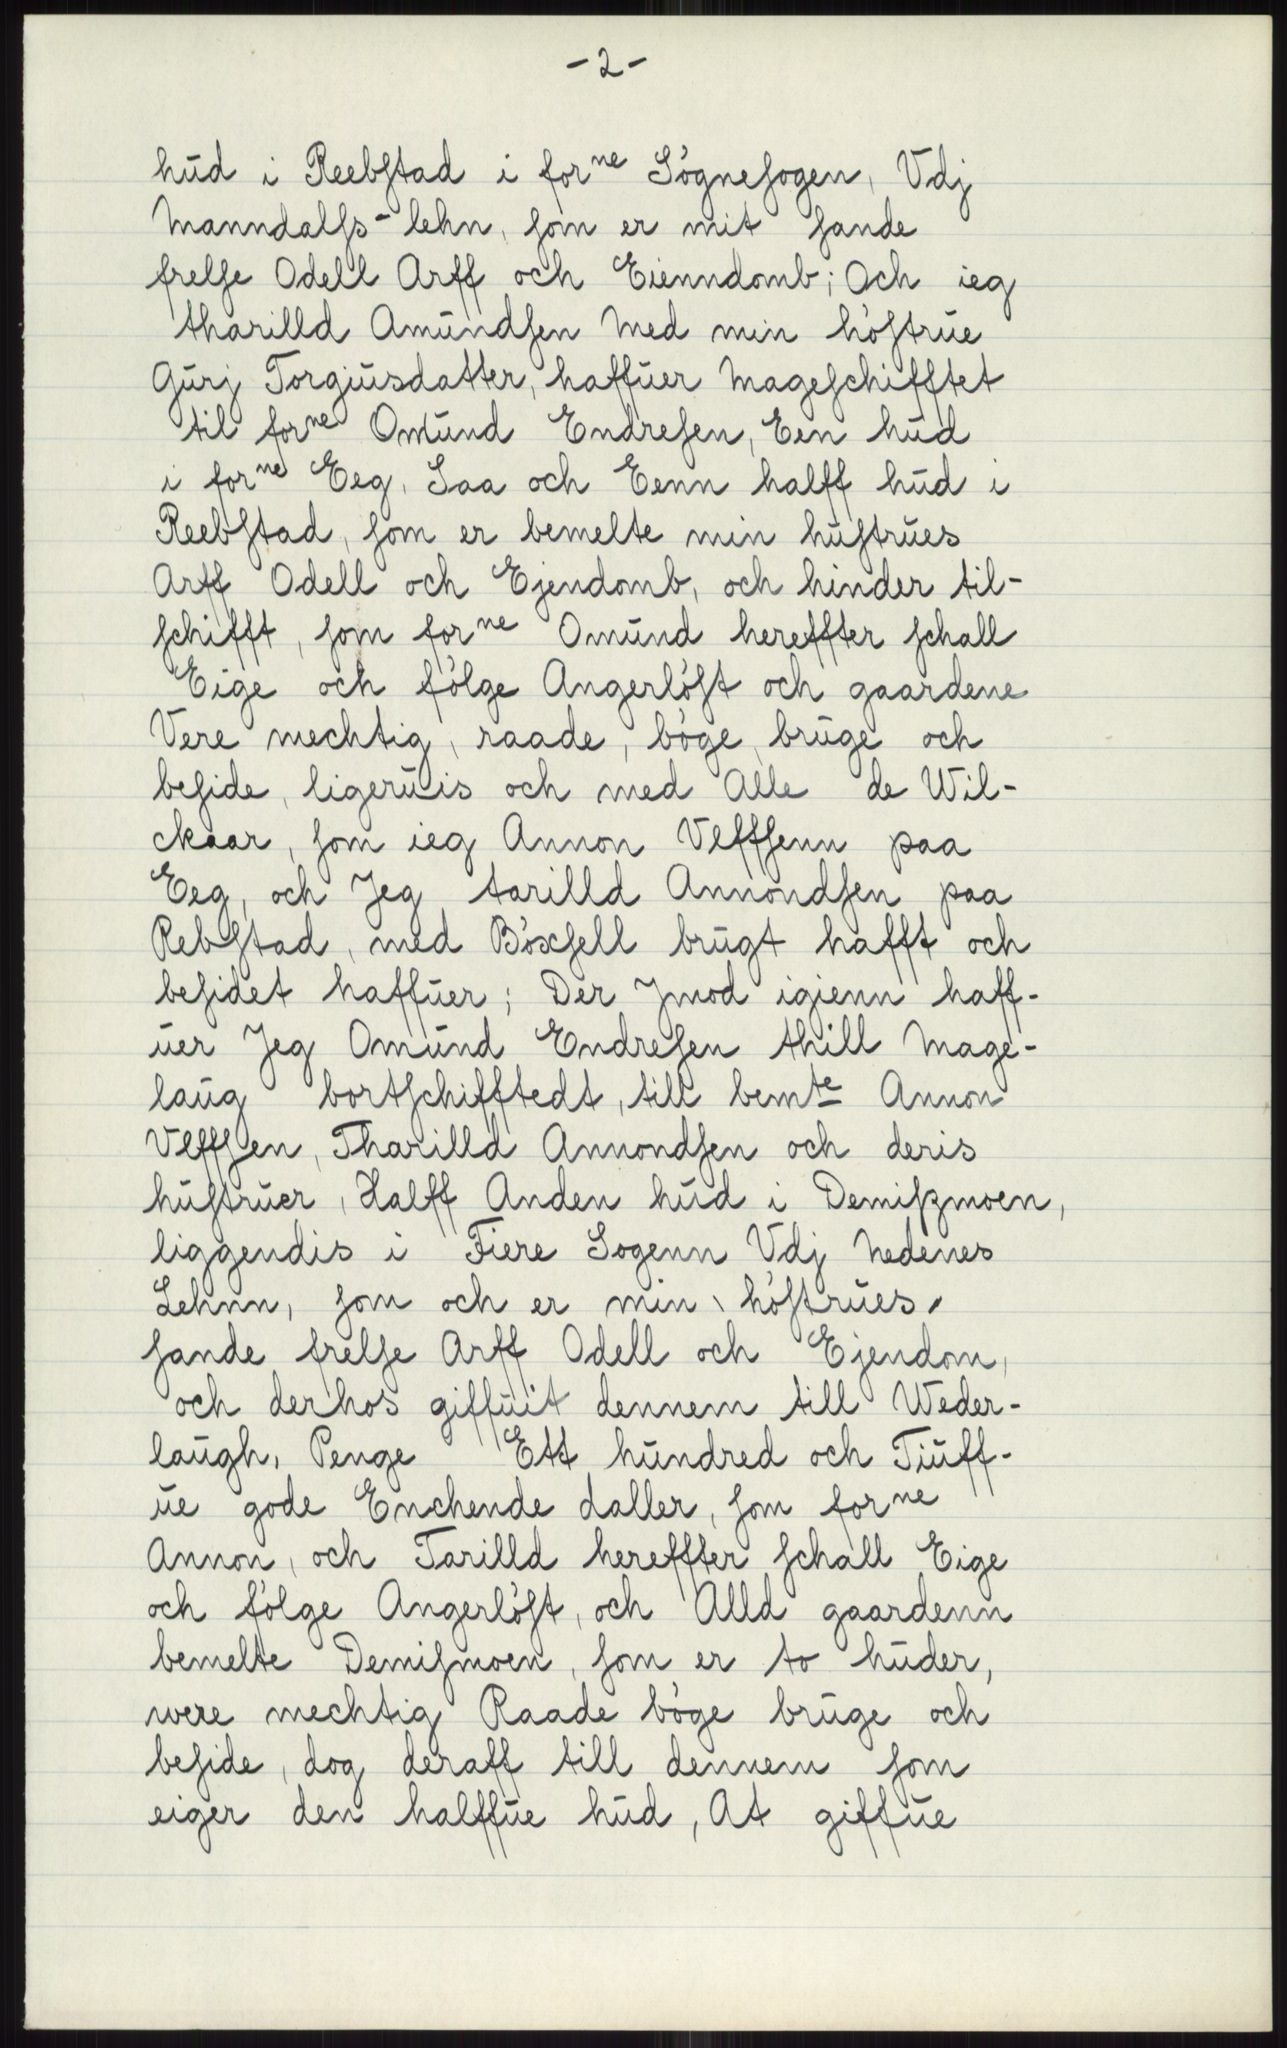 -2-
hud i Reebstad i forne Sögnesogen, Vdj
Manndalss-lehn, som er mit sande
frelse Odell Arff och Eienndomb; Och ieg
tharilld Amundsen Med min höstrue
Gurj Torgiusdatter, haffuer Mageschifftet
til forne Omund Endresen, Een hud
i forne Eeg, Saa och Eenn halff hud i
Reebstad, som er bemelte min hustrues
Arff Odell och Ejendomb, och hinder til-
schifft, som forne Omund hereffter schall
Eige och fölge Angerlöst och gaardene
Vere mechtig, raade, böge, bruge och
beside, ligeruis och med Alle de Wil-
ckaar, som ieg Annon Vlffsenn paa
Eeg, och Jeg tarilld Annondsen paa
Rebstad, med Böxsell brugt hafft och
besidet haffuer; Der Jmod igienn haff-
uer Jeg Omund Endresen thill Mage-
laug bortschifftedt, till bemte Annon
Vlffsen, Tharilld Annondsen och deris
hustruer, Halff Anden hud i Demiszmoen,
liggendis i Fiere Sogenn Vdj Nedenes
Lehnn, som och er min höstrues,
sande frelse Arff Odell och Ejendom,
och derhos giffuit dennem till Weder-
laugh, Penge Ett hundred och Tiuff-
ue gode Enchende daller, som forne
Annon, och Tarilld hereffter schall Eige
och fölge Angerlöst, och Alld gaardenn
bemelte Demismoen, som er to huder,
were mechtig Raade böge bruge och
beside, dog deraff till dennem som
eiger den halffue hud, At giffue